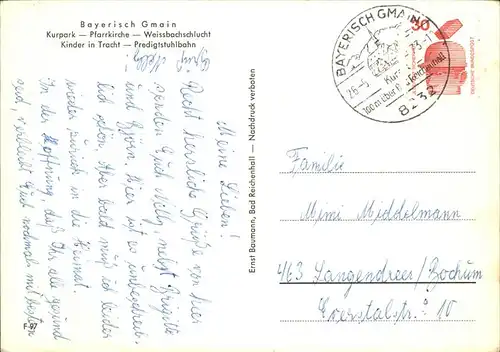 Bayerisch Gmain
Kurpark — Pfarrkirche — Weissbachschlucht
Kinder in Tracht — Predigtstuhlbahn
Meine Lieben!
Recht herzliche Grüße von hier
senden Euch Milly, nebst Brigitte
und Björn. Hier ist es unbeschreib-
lich schön. Aber bald muß ich leider
wieder zurück in die Heimat.
In der Hoffnung, daß Ihr alle gesund
seid, verbleibt Euch nochmals mit besten
F 97
Ernst Baumann, Bad Reichenhall — Nachdruck verboten
BAYERISCH GMAIN
26.-5. 73-1
100 m über Bad Reichenhall
8232
30
DEUTSCHE BUNDESPOST
Familie
Mimi Middelmann
463 Langendreer/Bochum
10